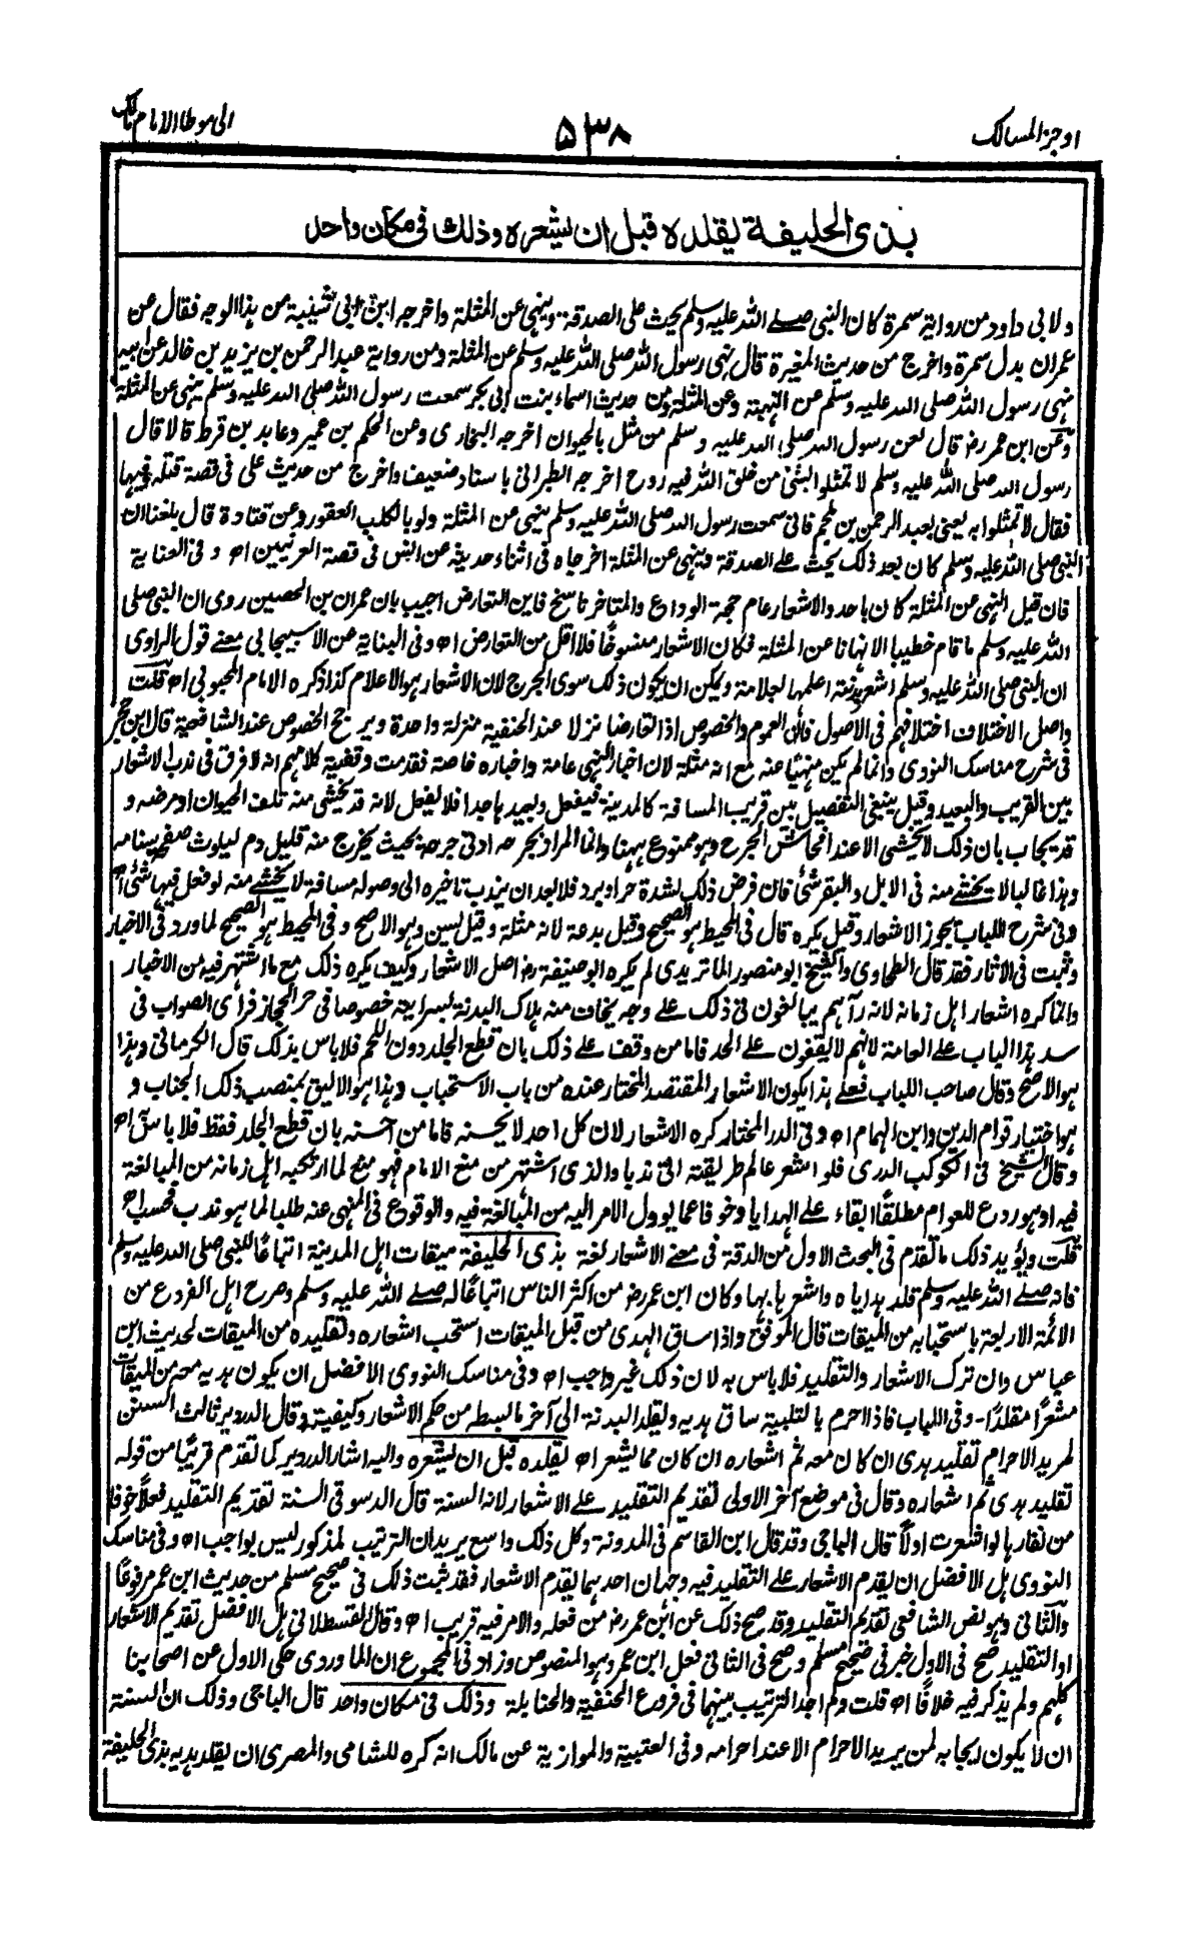 اوجز المسالك
٥٣٨
الى موطا الامام مالك
بذى الحليفة يقلده قبل ان يشعره وذلك فى مكان واحد
ولابى داود من رواية سمرة كان النبى صلے الله عليه وسلم يحث على الصدقة وينهى عن المثلة واخرجه ابن ابى شيبة من هذا الوجه فقال عن
عمران بدل سمرة واخرج من حديث المغيرة قال نهى رسول الله صلى الله عليه وسلم عن المثلة ومن رواية عبد الرحمن بن يزيد بن خالد عن ابيه
نهى رسول الله صلى الله عليه وسلم عن النهبة وعن المثلة ومن حديث اسماء بنت ابى بكر سمعت رسول الله صلى الله عليه وسلم ينهى عن المثلة
وعن ابن عمر رضـ قال لعن رسول الله صلى الله عليه وسلم من مثل بالحيوان اخرجه البخارى وعن الحكم بن عمير وعابد بن قرط قالا قال
رسول الله صلى الله عليه وسلم لا تمثلوا بشئ من خلق الله فيه روح اخرجه الطبرانى باسناد ضعيف واخرج من حديث على فى قصة قتله فيها
فقال لا تمثلوا به يعنى بعبد الرحمن بن ملجم فانى سمعت رسول الله صلى الله عليه وسلم ينهى عن المثلة ولو بالكلب العقور وعن قتادة قال بلغنا ان
النبى صلى الله عليه وسلم كان بعد ذلك يحث على الصدقة وينهى عن المثلة اخرجاه فى اثناء حديثه عن انس فى قصة العرنيين اه وفى العناية
فان قيل النهى عن المثلة كان باحد والاشعار عام حجة الوداع والمتاخر ناسخ فاين التعارض اجيب بان عمران بن الحصين روى ان النبى صلى
الله عليه وسلم ما قام خطيبا الا نهانا عن المثلة فكان الاشعار منسوخًا فلا اقل من التعارض اه وفى البناية عن الاسبيجابى معنے قول الراوى
ان النبى صلى الله عليه وسلم اشعر بدنة اعلمها بعلامة ويمكن ان يكون ذلك سوى الجرح لان الاشعار هو الاعلام كذا ذكره الامام المحبوبى اه قلت
واصل الاختلاف اختلافهم فى الاصول فان العموم والخصوص اذا تعارضا نزلا عند الحنفية منزلة واحدة ويرجح الخصوص عند الشافعية قال ابن حجر
فى شرح مناسك النووى وانما لم يكن منهيًا عنه مع انه مثلة لان اخبار النهى عامة واخباره خاصة فقدمت وقضية كلامهم انه لا فرق فى ندب الاشعار
بين القريب والبعيد وقيل ينبغى التفصيل بين قريب المسافة كالمدينة فيفعل وبعيدها جدا فلا يفعل لانه قد يخشى منه تلف الحيوان او مرضه و
قد يجاب بان ذلك لا يخشى الا عند افحاش الجرح وهو ممنوع ههنا وانما المراد بجرحه ادنى جرحة بحيث يخرج منه قليل دم ليلوث صفحة سنامه
وهذا غالبا لا يخشے منه فى الابل والبقر شئ فان فرض ذلك لشدة حر او برد فلا بعد ان يندب تاخيره الى وصوله مسافة لا يخشے منه لو فعل فيها شئ اه
وفى شرح اللباب يجوز الاشعار وقيل يكره قال فى المحيط هو الصحيح وقيل بدعة لانه مثلة وقيل يسن وهو الاصح وفى المحيط هو الصحيح لما ورد فى الاخبار
وثبت فى الاثار فقد قال الطحاوى والشيخ ابو منصور الماتريدى لم يكره ابو حنيفة رضـ اصل الاشعار وكيف يكره ذلك مع ما اشتهر فيه من الاخبار
وانما كره اشعار اهل زمانه لانه رآهم يبالغون فى ذلك على وجه يخاف منه هلاك البدنة لسرايته خصوصا فى حر الحجاز فرأى الصواب فى
سد هذا الباب على العامة لانهم لا يقفون على الحد فاما من وقف على ذلك بان قطع الجلد دون اللحم فلا باس بذلك قال الكرمانى وهذا
هو الاصح وقال صاحب اللباب فعلى هذا يكون الاشعار المقتصد المختار عنده من باب الاستحباب وهذا هو الاليق بمنصب ذلك الجناب و
هو اختيار قوام الدين وابن الهمام اه وفى الدر المختار كره الاشعار لان كل احد لا يحسنه فاما من احسنه بان قطع الجلد فقط فلا باس به اه
وقال الشيخ فى الكوكب الدرى فلو اشعر عالم طريقته الى ندبا والذى اشتهر من منع الامام فهو منع لما ارتكبه اهل زمانه من المبالغة
فيه او هو ردع للعوام مطلقًا ابقاء على الهدايا وخوفا عما يؤول الامر اليه من المبالغة فيه والوقوع فى المنهى عنه طلبا لما هو ندب فحسب اه
قلت ويؤيد ذلك ما تقدم فى البحث الاول من الدقة فى معنے الاشعار لغة بذى الحليفة ميقات اهل المدينة اتباعًا للنبى صلى الله عليه وسلم
فانه صلے الله عليه وسلم قلد هداياه واشعرها بها وكان ابن عمر رضـ من اكثر الناس اتباعًا له صلے الله عليه وسلم وصرح اهل الفروع من
الائمة الاربعة باستحبابه من الميقات قال الموفق واذا ساق الهدى من قبل الميقات استحب اشعاره وتقليده من الميقات لحديث ابن
عباس وان ترك الاشعار والتقليد فلا باس به لان ذلك غير واجب اه وفى مناسك النووى الافضل ان يكون هديه معه من الميقات
مشعرًا مقلدًا - وفى اللباب فاذا احرم بالتلبية ساق هديه ويقلد البدنة الى آخر ما بسطه من حكم الاشعار وكيفيته وقال الدردير ثالث السنن
لمريد الاحرام تقليد هدى ان كان معه ثم اشعاره ان كان مما يشعر اه يقلده قبل ان يشعره واليه اشار الدردير كما تقدم قريبًا من قوله
تقليد هدى ثم اشعاره وقال فى موضع آخر الاولى تقديم التقليد على الاشعار لانه السنة قال الدسوقى السنة تقديم التقليد فعلًا خوفا
من نفارها لو اشعرت اولًا قال الباجى وقد قال ابن القاسم فى المدونة وكل ذلك واسع يريد ان الترتيب المذكور ليس بواجب اه وفى مناسك
النووى هل الافضل ان يقدم الاشعار على التقليد فيه وجهان احدهما يقدم الاشعار فقد ثبت ذلك فى صحيح مسلم من حديث ابن عمر مرفوعًا
والثانى وهو نص الشافعى تقديم التقليد وقد صح ذلك عن ابن عمر رضـ من فعله والامر فيه قريب اه وقال القسطلانى هل الافضل تقديم الاشعار
او التقليد صح فى الاول خبر فى صحيح مسلم وصح فى الثانى فعل ابن عمر وهو المنصوص وزاد فى المجموع ان الماوردى حكى الاول عن اصحابنا
كلهم ولم يذكر فيه خلافًا اه قلت ولم اجد الترتيب بينهما فى فروع الحنفية والحنابلة وذلك فى مكان واحد قال الباجى وذلك ان السنة
ان لا يكون ايجابه لمن يريد الاحرام الا عند احرامه وفى العتبية والموازية عن مالك انه كره للشامى والمصرى ان يقلد هديه بذى الحليفة